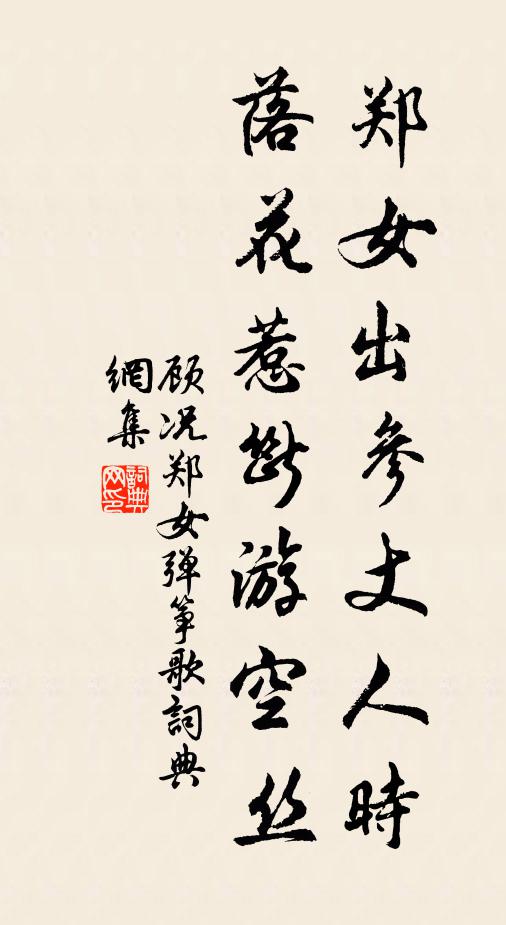 郑女出參丈人時
落花惹断游空丝
顾况郑女弹筝歌詞典
網集
詞典網印